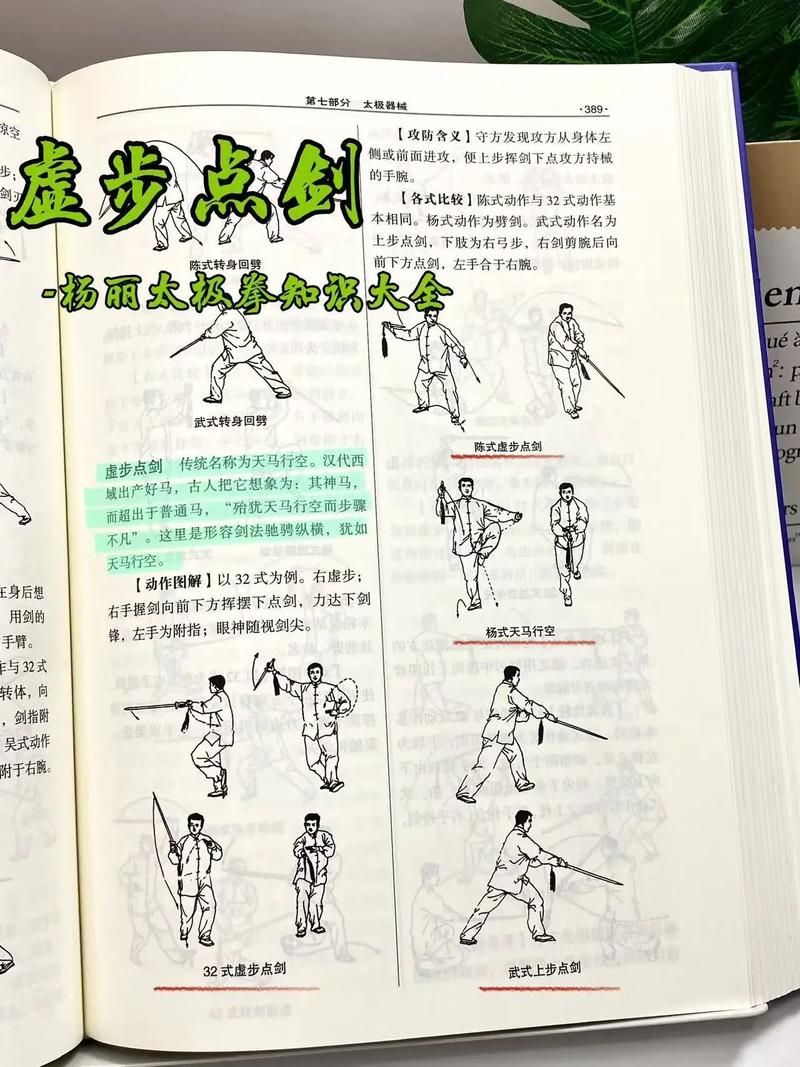 第七部分 太极器械
·389·
虚步点剑
-杨丽太极拳知识大全
陈式转身回劈
武式转身回劈
虚步点剑 传统名称为天马行空。汉代西
域出产好马，古人把它想象为：其神马，
而超出于普通马，“殆犹天马行空而步骤
不凡”。这里是形容剑法驰骋纵横，犹如
天马行空。
【动作图解】以32式为例。右虚步；
右手握剑向前下方挥摆下点剑，力达下剑
锋，左手为附指；眼神随视剑尖。
32式虚步点剑
【攻防含义】守方发现攻方从身体左
侧或前面进攻，便上步挥剑下点攻方持械
的手腕。
【各式比较】陈式动作与32式动作基
本相同。杨式动作为劈剑。武式动作名为
上步点剑，下肢为右弓步，右剑剪腕后向
前下方点剑，左手合于右腕。
陈式虚步点剑
杨式天马行空
武式上步点剑
在身后想
用剑的
手臂。
作与32式
转体，向
，剑指附
吴式动作
附于右腕。